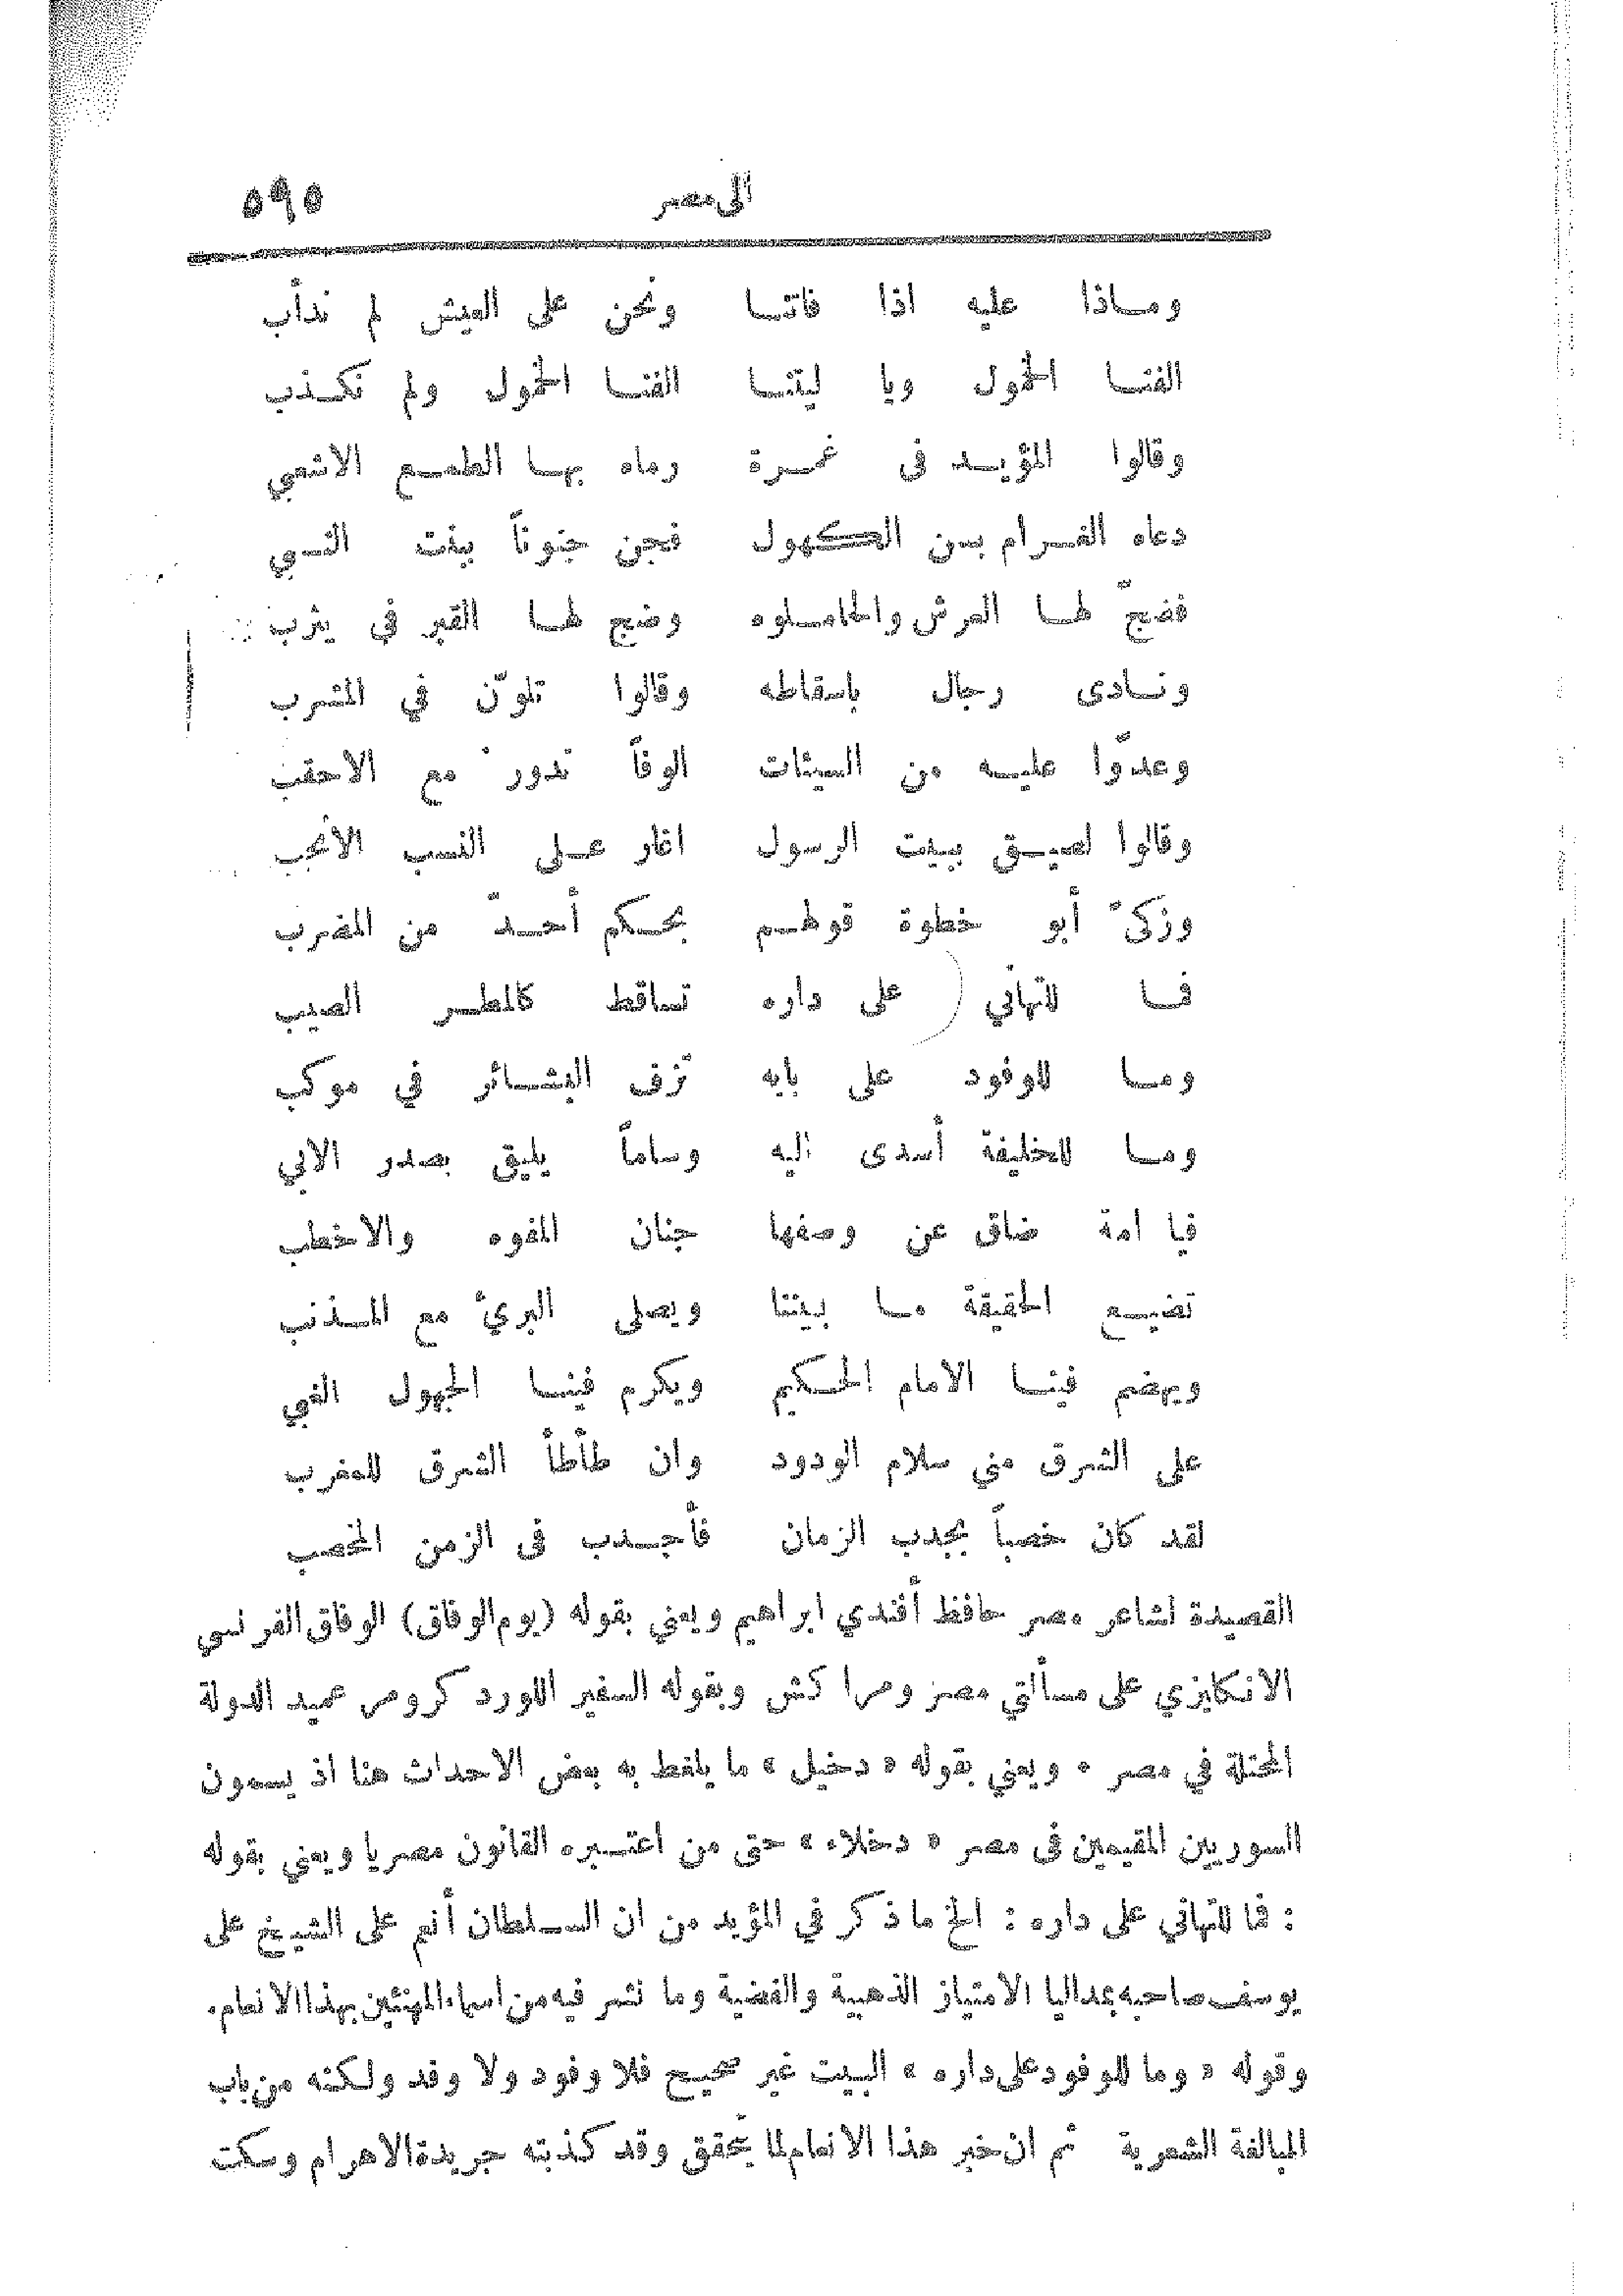 الى مصر ٥٩٥
وماذا عليه اذا فاتنا ونحن على العيش لم ندأب
الفنا الخمول ويا ليتنا الفنا الخمول ولم نكذب
وقالوا المؤيد فى غمرة رماه بها الطمع الاشعبي
دعاه الغرام بسن الكهول فجن جنوناً ببنت النبي
فضجّ لها العرش والحاملوه وضج لها القبر في يثرب
ونادى رجال باسقاطه وقالوا تلوّن في المشرب
وعدّوا عليه من السيئات الوفاً تدور مع الاحقب
وقالوا لصيق ببيت الرسول اغار على النسب الانجب
وزكىّ أبو خطوة قولهم بحكم أحدّ من المضرب
فما للتهاني على داره تساقط كالمطر الصيب
وما للوفود على بابه تزف البشائر في موكب
وما للخليفة أسدى اليه وساماً يليق بصدر الابي
فيا امة ضاق عن وصفها جنان المفوه والاخطب
تضيع الحقيقة ما بيننا ويصلى البريّ مع المذنب
ويهضم فينا الامام الحكيم ويكرم فينا الجهول الغبي
على الشرق مني سلام الودود وان طأطأ الشرق للمغرب
لقد كان خصباً بجدب الزمان فأجدب فى الزمن المخصب
القصيدة لشاعر مصر حافظ أفندي ابراهيم ويعني بقوله (يوم الوفاق) الوفاق الفرنسي
الانكليزي على مسألتي مصر ومراكش وبقوله السفير اللورد كرومر عميد الدولة
المحتلة في مصر ٠ ويعني بقوله « دخيل » ما يلغط به بعض الاحداث هنا اذ يسمون
السوريين المقيمين فى مصر « دخلاء » حتى من اعتبره القانون مصريا ويعني بقوله
: فما للتهاني على داره : الخ ما ذكر في المؤيد من ان السلطان أنعم على الشيخ على
يوسف صاحبه بمداليا الامتياز الذهبية والفضية وما نشر فيه من اسماء المهنئين بهذا الانعام.
وقوله « وما للوفود على داره » البيت غير صحيح فلا وفود ولا وفد ولكنه من باب
المبالغة الشعرية ثم ان خبر هذا الانعام لما يتحقق وقد كذبته جريدة الاهرام وسكت